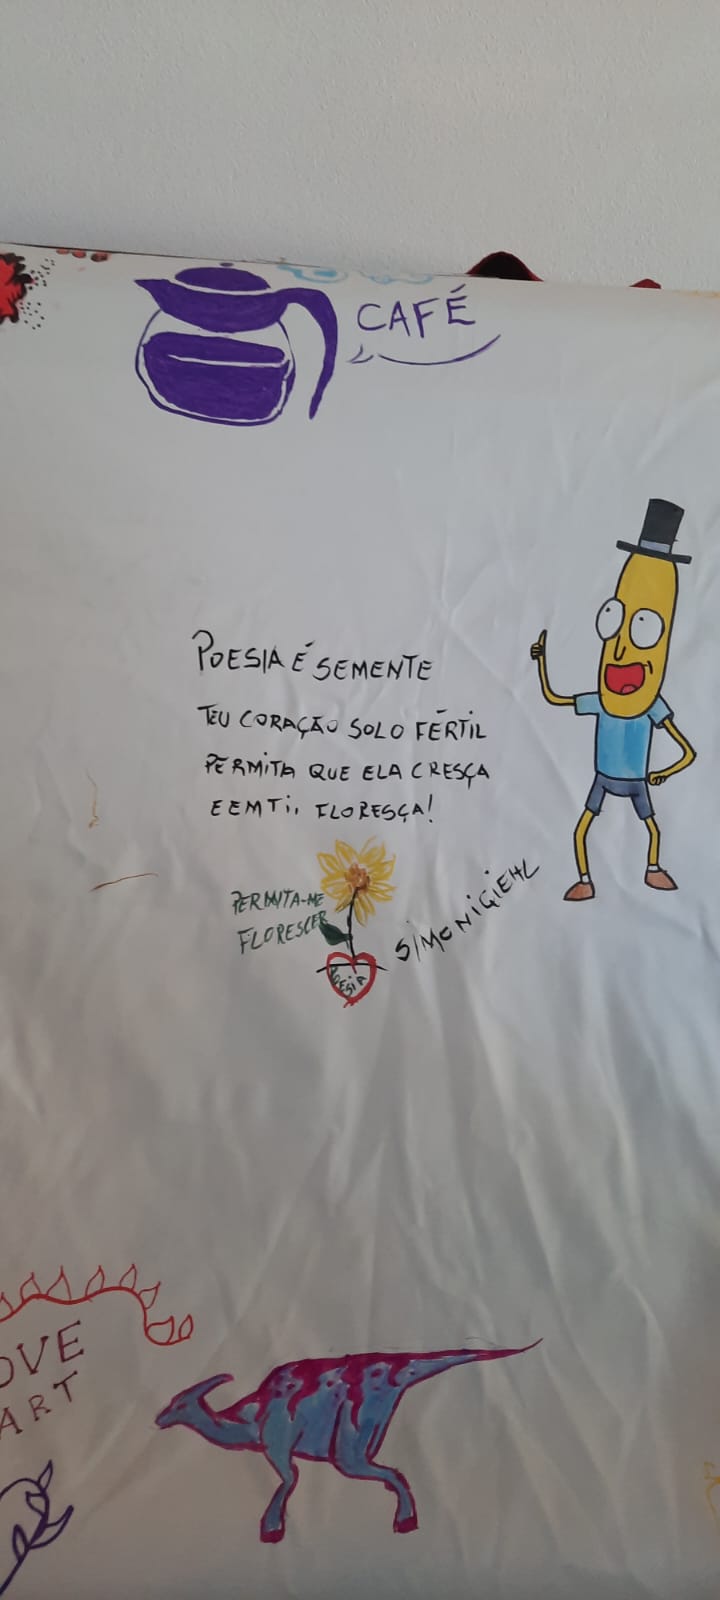 CAFÉ
POESIA É SEMENTE
TEU CORAÇÃO SOLO FÉRTIL
PERMITA QUE ELA CRESÇA
E EM TI, FLORESÇA!
PERMITA-ME
FLORESCER
SIMONIGIEHL
POESIA
OVE
ART